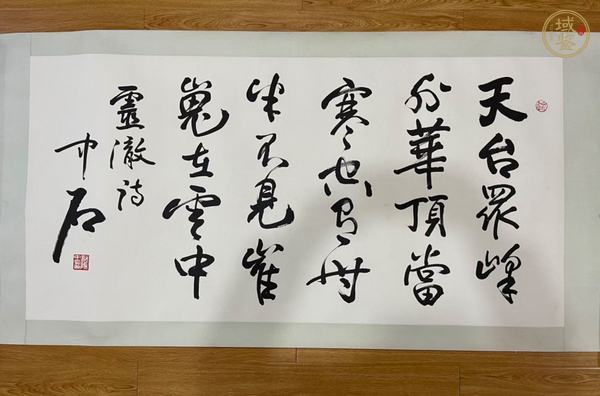 天台眾峰
外華頂當
寒空有時
半不見崔
嵬在雲中
靈澈詩
中石
域鑒